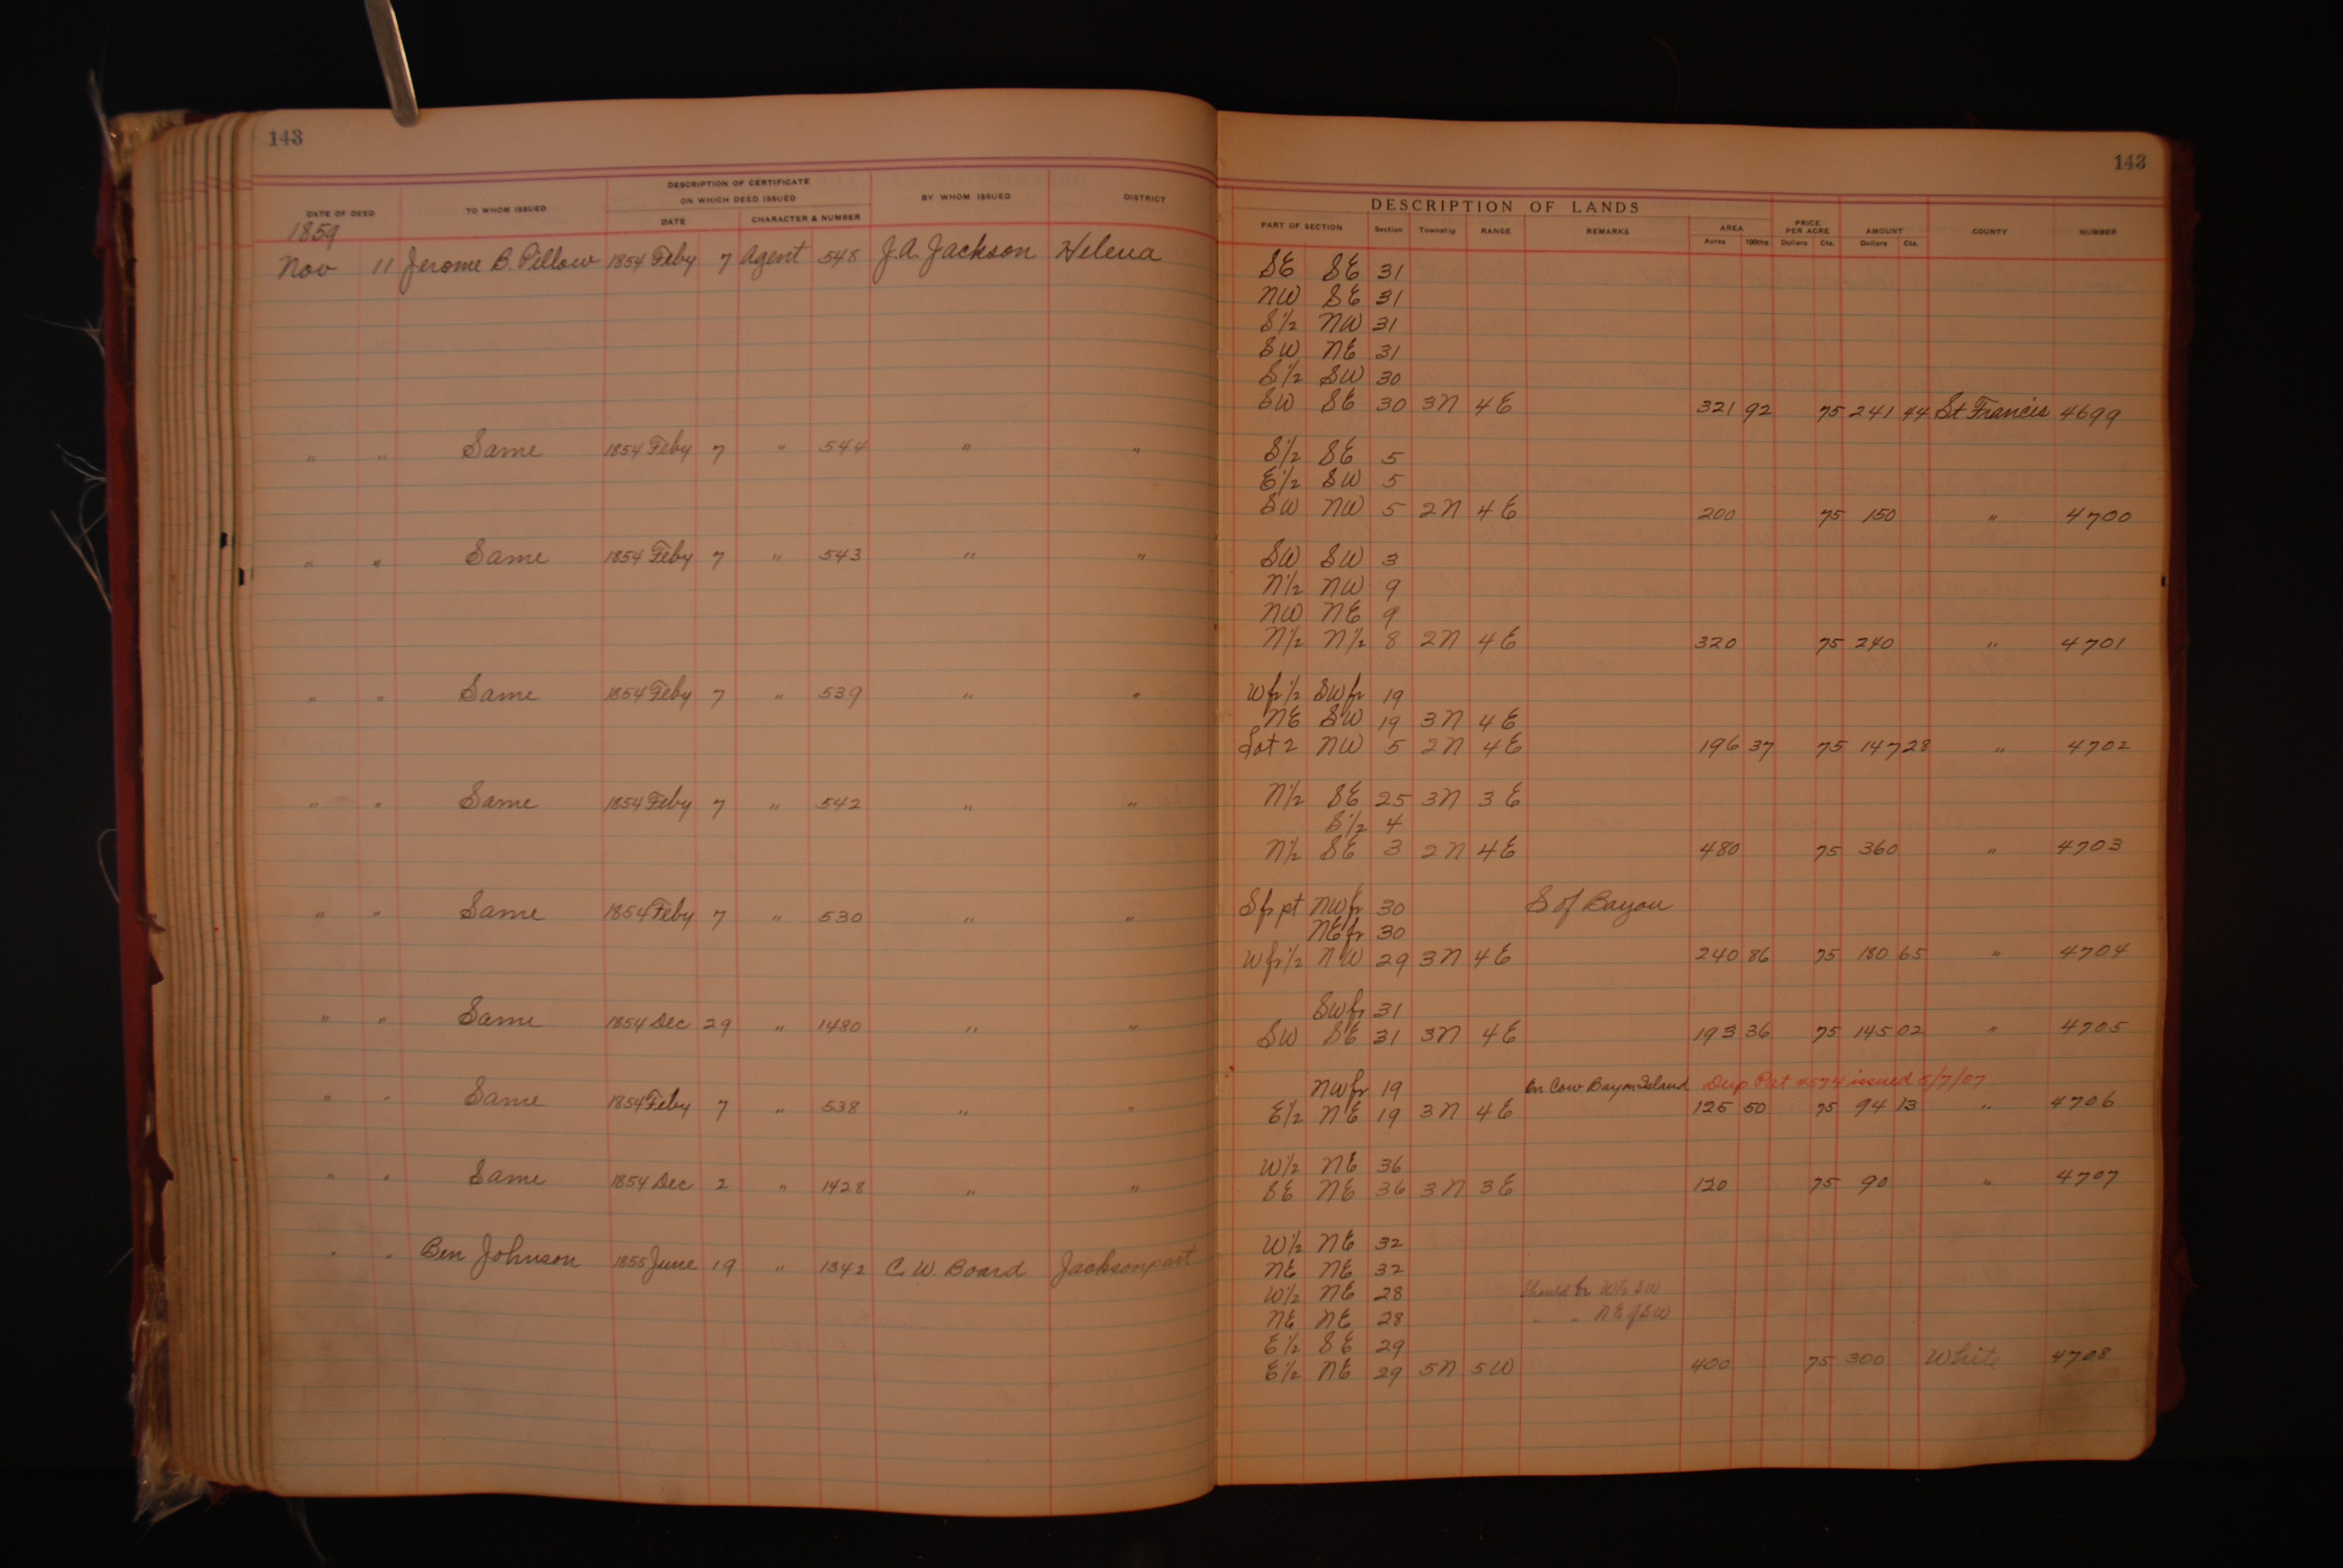 143
DATE OF DEED TO WHOM ISSUED DESCRIPTION OF CERTIFICATE ON WHICH DEED ISSUED BY WHOM ISSUED DISTRICT
DATE CHARACTER & NUMBER
1859
Nov 11 Jerome B. Pillow 1854 Feby 7 Agent 548 J.A. Jackson Helena
" " Same 1854 Feby 7 " 544 " "
" " Same 1854 Feby 7 " 543 " "
" " Same 1854 Feby 7 " 539 " "
" " Same 1854 Feby 7 " 542 " "
" " Same 1854 Feby 7 " 530 " "
" " Same 1854 Dec 29 " 1480 " "
" " Same 1854 Feby 7 " 538 " "
" " Same 1854 Dec 2 " 1428 " "
" " Ben Johnson 1855 June 19 " 1342 C. W. Board Jacksonport
143
DESCRIPTION OF LANDS
PART OF SECTION Section Township RANGE REMARKS AREA PRICE PER ACRE AMOUNT COUNTY NUMBER
Acres 100ths Dollars Cts. Dollars Cts.
SE SE 31
NW SE 31
S½ NW 31
SW NE 31
S½ SW 30
SW SE 30 3N 4E 321 92 75 241 44 St Francis 4699
S½ SE 5
E½ SW 5
SW NW 5 2N 4E 200 75 150 " 4700
SW SW 3
N½ NW 9
NW NE 9
N½ N½ 8 2N 4E 320 75 240 " 4701
Wfr½ SWfr 19
NE SW 19 3N 4E
Lot 2 NW 5 2N 4E 196 37 75 147 28 " 4702
N½ SE 25 3N 3E
S½ 4
N½ SE 3 2N 4E 480 75 360 " 4703
Sfr pt NWfr 30 S of Bayou
NEfr 30
Wfr½ NW 29 3N 4E 240 86 75 180 65 " 4704
SWfr 31
SW SE 31 3N 4E 193 36 75 145 02 " 4705
NWfr 19 On Cow Bayou Island Dup Pat 2574 issued 5/7/07
E½ NE 19 3N 4E 125 50 75 94 13 " 4706
W½ NE 36
SE NE 36 3N 3E 120 75 90 " 4707
W½ NE 32
NE NE 32
W½ NE 28 Should be W½ SW
NE NE 28 " " NE of SW
E½ SE 29
E½ NE 29 5N 5W 400 75 300 White 4708